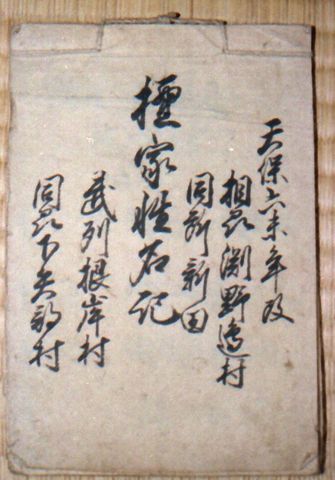 天保六未年改
相州淵野邉村
同所新田
檀家姓名記
武州根岸村
同州下矢部村